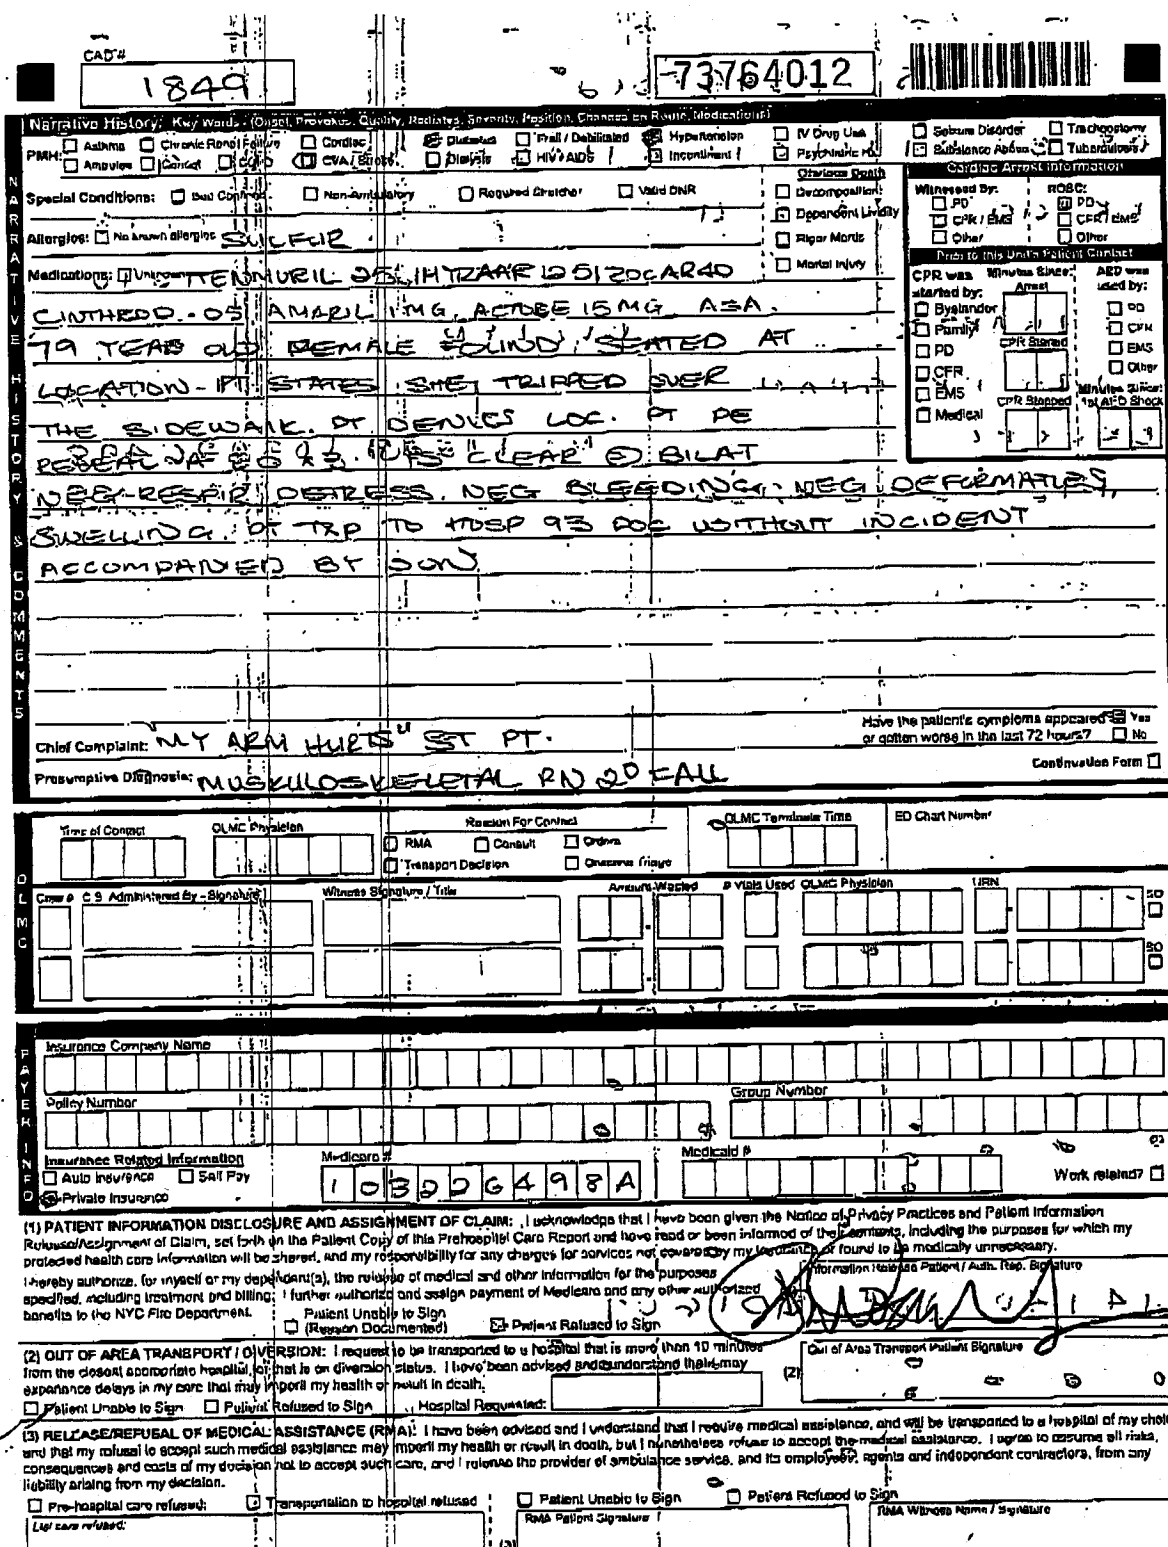 CAD #
1849
73764012
Narrative History: Key Words - (Onset, Provokes, Quality, Radiates, Severity, Position, Changes en Route, Medications)
PMH: Asthma Chronic Renal Failure Cardiac Diabetes Frail / Debilitated Hypertension IV Drug Use Seizure Disorder Tracheostomy
CVA / Stroke Dialysis HIV / AIDS Incontinent Psychiatric Hx Substance Abuse Tuberculosis
NARRATIVE HISTORY & COMMENTS
Special Conditions: Bed Confined Non-Ambulatory Required Stretcher Valid DNR
Obvious Death
Decomposition
Dependent Lividity
Rigor Mortis
Mortal Injury
Cardiac Arrest Information
Witnessed By: ROSC:
PD PD
CFR / EMS CFR / EMS
Other Other
Prior to this Unit's Patient Contact
CPR was started by: Minutes Since: AED was used by:
Arrest
Bystander PD
Family CFR
PD CPR Started EMS
CFR Other
EMS CPR Stopped Minutes Since: 1st AED Shock
Medical
Allergies: No known allergies SULFUR
Medications: Unknown
AMARIL 1MG, 15MG ASA.
79 YEAR OLD FEMALE FOUND SEATED AT
LOCATION - PT STATES SHE TRIPPED OVER
THE SIDEWALK. PT DENIES LOC. PT PE
REVEAL CLEAR BILAT
NEG-RESPIR DISTRESS. NEG BLEEDING, NEG DEFORMATIES,
SWELLING. PT TRP TO HOSP 93 WITHOUT INCIDENT
ACCOMPANIED BY SON
Chief Complaint: "MY ARM HURTS" ST PT.
Have the patient's symptoms appeared or gotten worse in the last 72 hours? Yes No
Presumptive Diagnosis: MUSKULOSKELETAL PN 2° FALL
Continuation Form
OLMC
Time of Contact OLMC Physician Reason For Contact OLMC Terminate Time ED Chart Number
RMA Consult Orders
Transport Decision
C.S. Administered By - Signature Witness Signature / Title Amount Wasted # Vials Used OLMC Physician URN SO
SO
PAYER INFO
Insurance Company Name
Policy Number Group Number
Insurance Related Information Medicare # Medicaid #
Auto Insurance Self Pay 103226498A Work related?
Private Insurance
(1) PATIENT INFORMATION DISCLOSURE AND ASSIGNMENT OF CLAIM: I acknowledge that I have been given the Notice of Privacy Practices and Patient Information
Release/Assignment of Claim, set forth on the Patient Copy of this Prehospital Care Report and have read or been informed of their contents, including the purposes for which my
protected health care information will be shared, and my responsibility for any charges for services not covered by my insurance or found to be medically unnecessary.
I hereby authorize, for myself or my dependant(s), the release of medical and other information for the purposes
specified, including treatment and billing. I further authorize and assign payment of Medicare and any other authorized
benefits to the NYC Fire Department.
Information Release Patient / Auth. Rep. Signature
Patient Unable to Sign (Reason Documented) Patient Refused to Sign
(2) OUT OF AREA TRANSPORT / DIVERSION: I request to be transported to a hospital that is more than 10 minutes
from the closest appropriate hospital, or that is on diversion status. I have been advised and understand that I may
experience delays in my care that may imperil my health or result in death.
(2) Out of Area Transport Patient Signature
Patient Unable to Sign Patient Refused to Sign Hospital Requested:
(3) RELEASE/REFUSAL OF MEDICAL ASSISTANCE (RMA): I have been advised and I understand that I require medical assistance, and will be transported to a hospital of my choice
and that my refusal to accept such medical assistance may imperil my health or result in death, but I nonetheless refuse to accept the medical assistance. I agree to assume all risks,
consequences and costs of my decision not to accept such care, and I release the provider of ambulance service, and its employees, agents and independent contractors, from any
liability arising from my decision.
Pre-hospital care refused: Transportation to hospital refused Patient Unable to Sign Patient Refused to Sign
List care refused: RMA Patient Signature RMA Witness Name / Signature